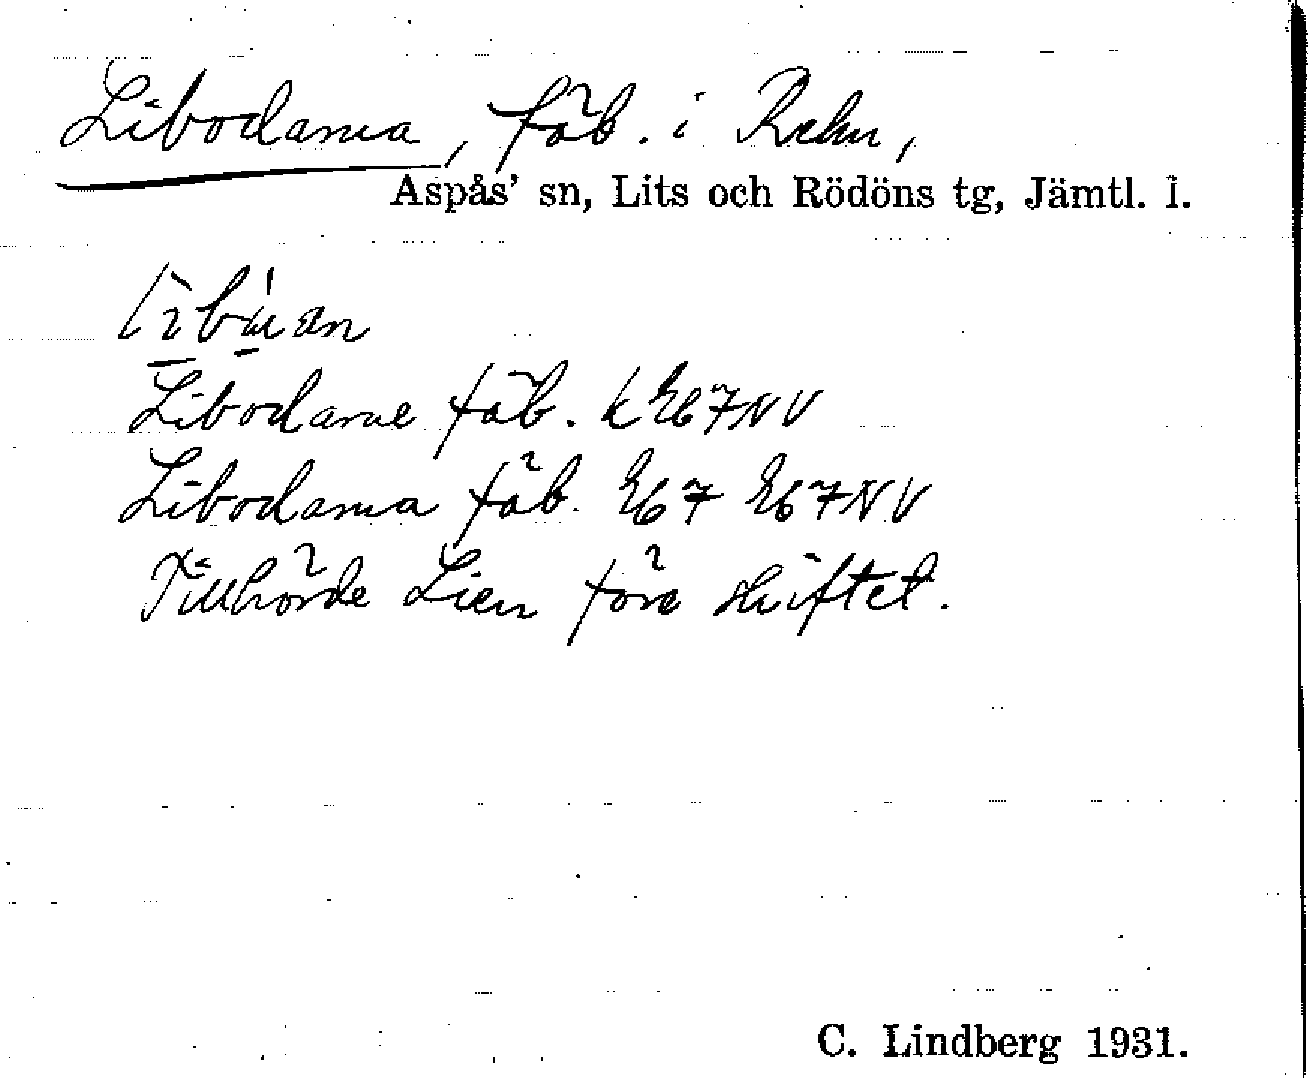 Libodarna, fäb. i Rehn,
Aspås' sn, Lits och Rödöns tg, Jämtl. l.
Libodarne fäb. k E67NV
Libodarna fäb. E67 E67NV
Tillhörde Lien före skiftet.
C. Lindberg 1931.